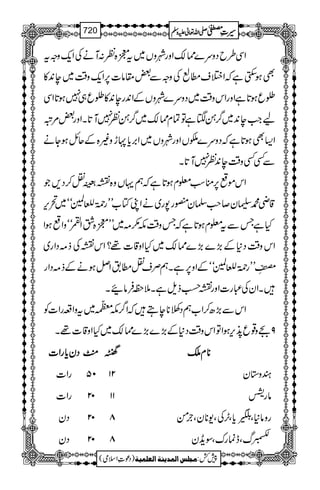 سیرتِ مصطفیٰ صلی اللہ تعالیٰ علیہ وسلم 720
اسی طرح دوسرے ممالک اور شہروں میں یہ معجزہ نظر نہ آنے کی ایک وجہ یہ
بھی ہو سکتی ہے کہ اختلاف مطالع کی وجہ سے بعض مقامات پر ایک وقت میں چاند کا
طلوع ہوتا ہے اور اس وقت میں دوسرے شہروں کے اندر چاند کا طلوع ہی نہیں ہوتا اسی
لئے جب چاند میں گرہن لگتا ہے تو تمام ممالک میں گرہن نظر نہیں آتا۔ اور بعض مرتبہ
ایسا بھی ہوتا ہے کہ دوسرے ملکوں اور شہروں میں ابر یا پہاڑ وغیرہ کے حائل ہو جانے
سے کسی کسی وقت چاند نظر نہیں آتا۔
اس موقع پر مناسب معلوم ہوتا ہے کہ ہم یہاں وہ نقشہ بعینہ نقل کر دیں جو
قاضی محمد سلیمان صاحب سلمان منصور پوری نے اپنی کتاب ’’رحمۃ للعالمین‘‘ میں تحریر
کیا ہے جس سے یہ معلوم ہوتا ہے کہ جس وقت مکہ مکرمہ میں ’’معجزہ شق القمر‘‘ واقع ہوا
اس وقت دنیا کے بڑے بڑے ممالک میں کیا اوقات تھے؟ اس نقشہ کی ذمہ داری
مصنف ’’رحمۃ للعالمین‘‘ کے اوپر ہے۔ ہم صرف نقل مطابق اصل ہونے کے ذمہ دار
ہیں۔ ان کی عبارت اور نقشہ حسب ذیل ہے۔ ملاحظہ فرمائیے۔
اس سے بڑھ کر اب ہم دکھلانا چاہتے ہیں کہ اگر مکہ معظمہ میں یہ واقعہ رات کو
۹ بجے وقوع پذیر ہوا تو اس وقت دنیا کے بڑے بڑے ممالک میں کیا اوقات تھے۔
نام ملک گھنٹہ منٹ دن یا رات
ہندوستان ۱۲ ۵۰ رات
ماریشس ۱۱ ۲۰ رات
رومانیا، بلگیریا، ٹرکی، یونان، جرمن، ۸ ۲۰ دن
لکسمبرگ، ڈنمارک، سویڈن، ۸ ۲۰ دن
پیش کش: مجلس المدینة العلمیة (دعوتِ اسلامی)